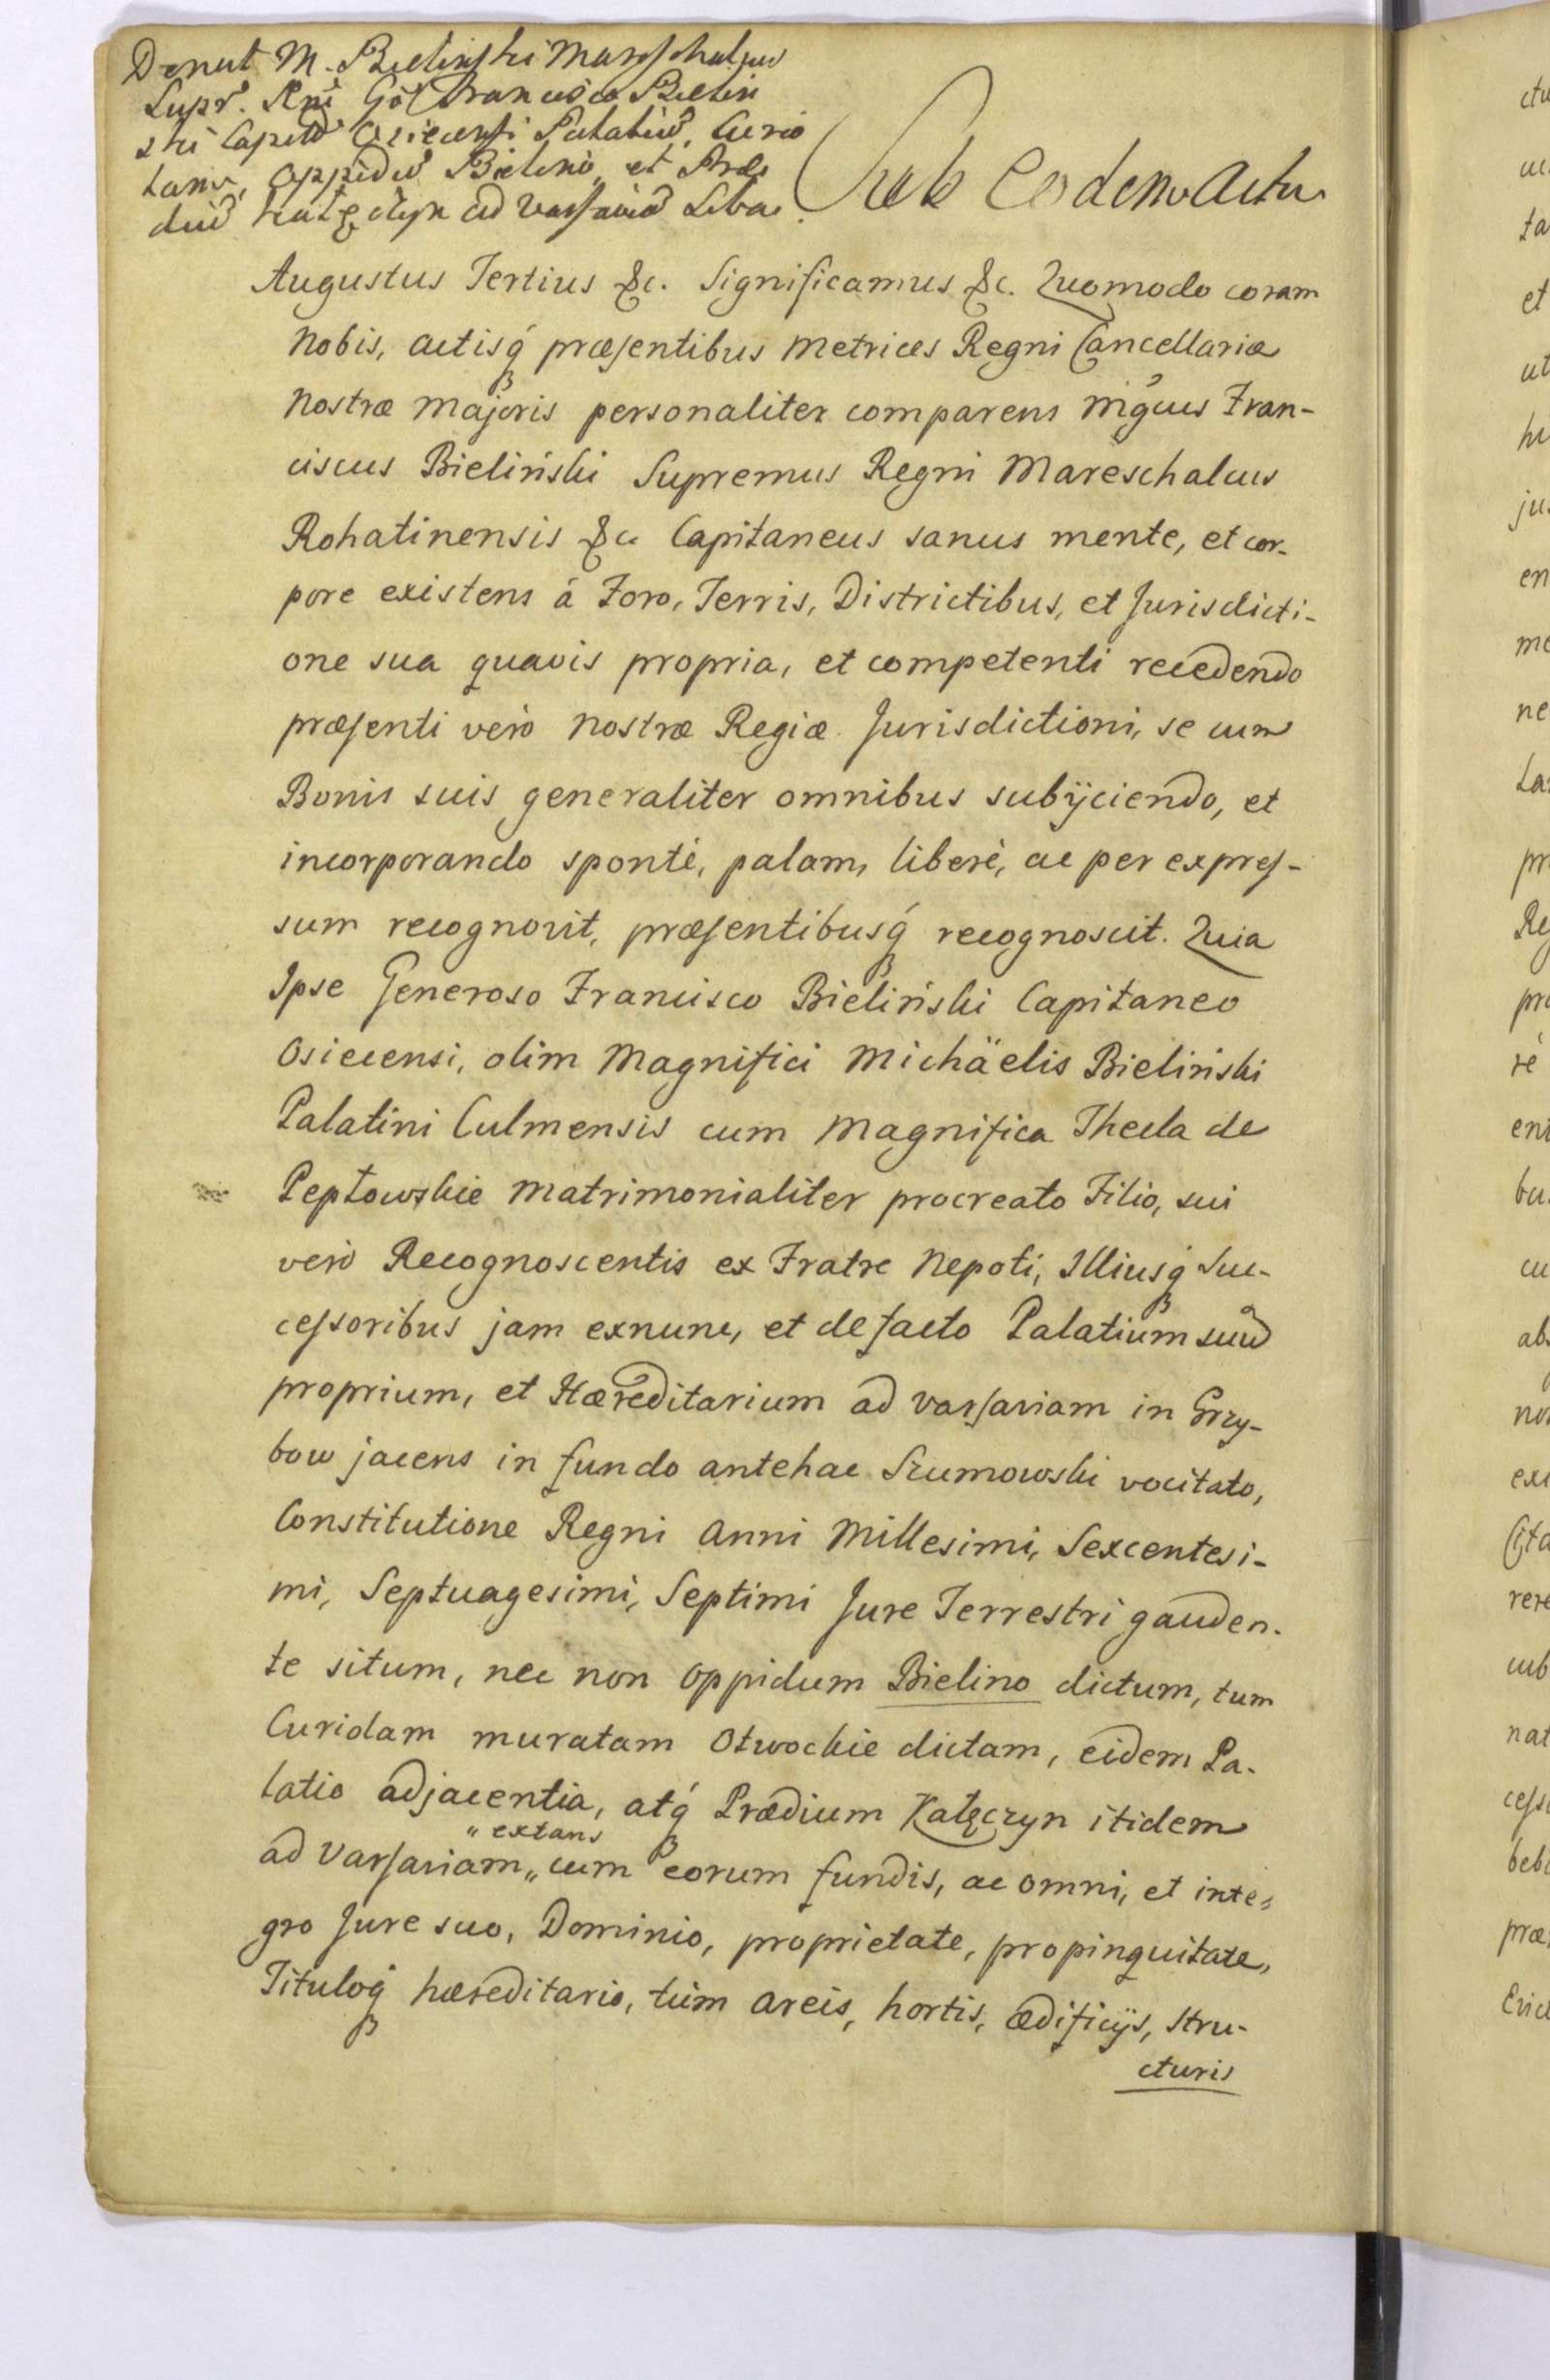 Donat M. Bielinski Marschalcus
Supr. Rni Gō Francisco Bielin
ski Capitō Osiecensi Palatiū, Curio
lam, Oppidū Bielino, et Præ
diū Kałęczyn ad Varsaviā
Sub Eodem Actu
Augustus Tertius &c. Significamus &c. Quomodo coram
Nobis, actisq́ præsentibus Metrices Regni Cancellariæ
Nostræ Majoris personaliter comparens Mg̃cus Fran-
ciscus Bieliński Supremus Regni Mareschalcus
Rohatinensis &c Capitaneus sanus mente, et cor-
pore existens á Foro, Terris, Districtibus, et Jurisdicti-
one sua quavis propria, et competenti recedendo
præsenti verò Nostræ Regiæ Jurisdictioni, se cum
Bonis suis generaliter omnibus subijciendo, et
incorporando spontè, palam, liberè, ac per expres-
sum recognovit, præsentibusq́ recognoscit. Quia
Ipse Generoso Francisco Bieliński Capitaneo
Osiecensi, olim Magnifici Michäelis Bieliński
Palatini Culmensis cum Magnifica Thecla de
Pepłowskie matrimonialiter procreato Filio, sui
verò Recognoscentis ex Fratre Nepoti, Illiusq́ Suc-
cessoribus jam exnunc, et defacto Palatium suū
proprium, et Hæreditarium ad Varsaviam in Grzy-
bow jacens in fundo antehac Szumowski vocitato,
Constitutione Regni Anni Millesimi, Sexcentesi-
mi, Septuagesimi, Septimi Jure Terrestri gauden-
te situm, nec non Oppidum Bielino dictum, tum
Curiolam muratam Otwockie dictam, eidem Pa-
latio adjacentia, atq́ Prædium Kałęczyn itidem
" extans
ad Varsaviam „ cum eorum fundis, ac omni, et inte-
gro Jure suo, Dominio, proprietate, propinquitate,
Tituloq́ hæreditario, tùm areis, hortis, ædificijs, stru-
cturis